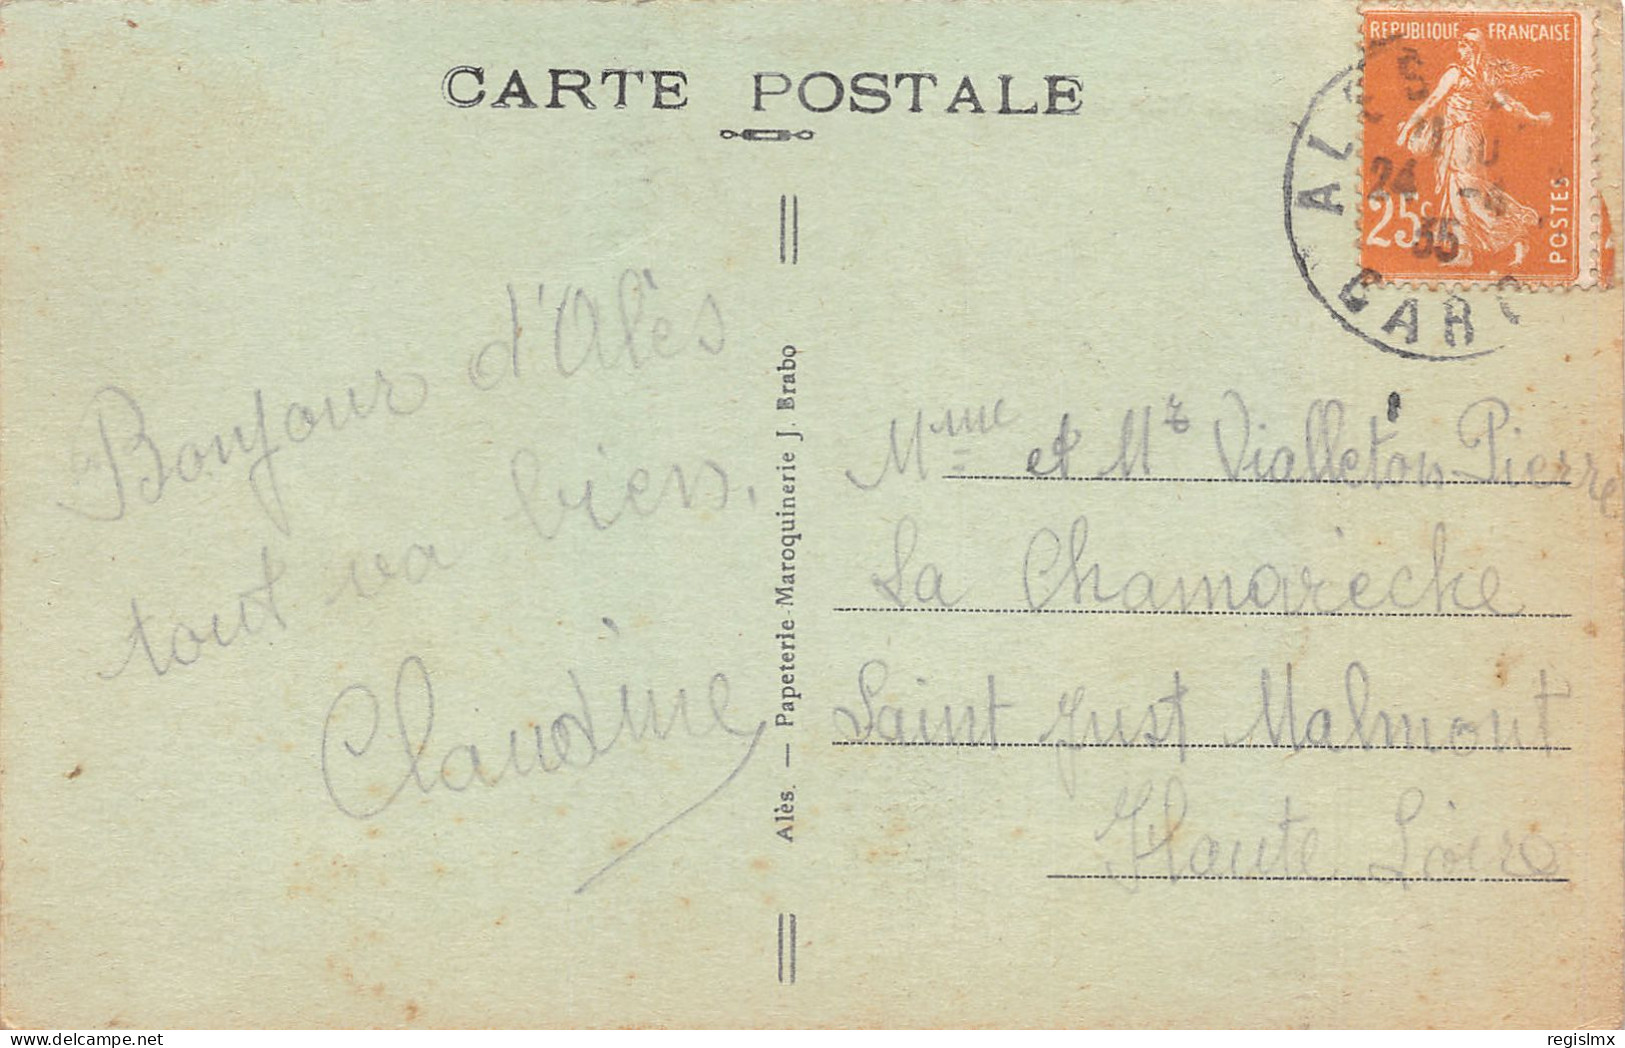 CARTE POSTALE
REPUBLIQUE FRANÇAISE
25c
POSTES
ALES
24
35
GARD
Bonjour d'Alès
tout va bien.
Claudine
Alès. — Papeterie-Maroquinerie J. Brabo
Mme et Mr Vialleton Pierre
La Chamarèche
Saint Just Malmont
Haute Loire
regislmx